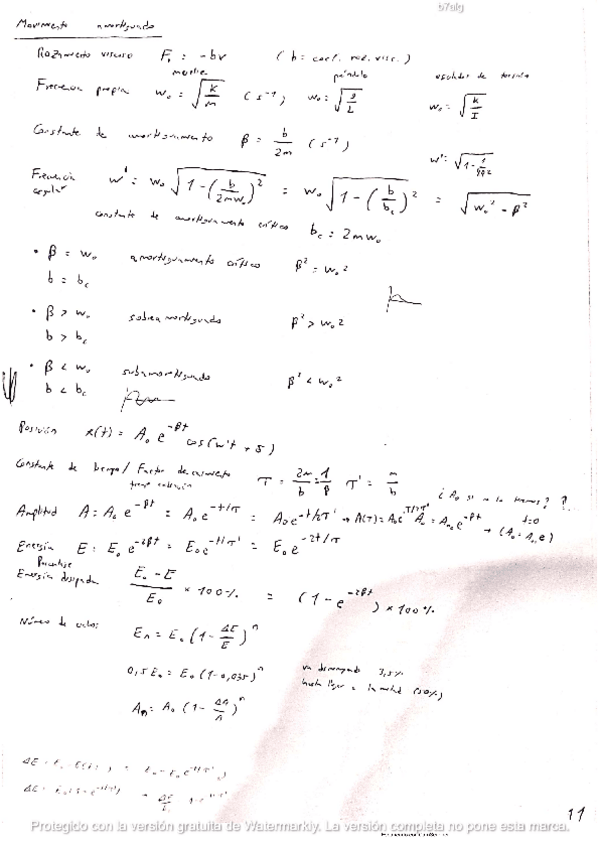 b7alg
Movimiento amortiguado
Rozamiento viscoso F_r = -bv ( b = coef. roz. visc.)
muelle péndulo oscilador de torsión
Frecuencia propia w₀ = √(k/m) (s⁻¹) w₀ = √(g/L) w₀ = √(k/I)
Constante de amortiguamiento β = b/2m (s⁻¹)
Frecuencia angular w' = w₀ √(1-(b/2mw₀)²) = w₀ √(1-(b/b_c)²) = √(w₀² - β²)
constante de amortiguamiento crítico b_c = 2mw₀
• β = w₀ amortiguamiento crítico β² = w₀²
b = b_c
• β > w₀ sobreamortiguado β² > w₀²
b > b_c
• β < w₀ subamortiguado β² < w₀²
b < b_c
Posición x(t) = A₀ e^(-βt) cos(w't + δ)
Constante de tiempo / Factor de τ = 2m/b = 1/β τ' = m/b
¿A₀ si no la tenemos? ?
Amplitud A = A₀ e^(-βt) = A₀ e^(-t/τ) = A₀ e^(-t/2τ')
Energía E = E₀ e^(-2βt) = E₀ e^(-t/τ') = E₀ e^(-2t/τ)
Porcentaje
Energía disipada (E₀ - E)/E₀ × 100% = (1 - e^(-2βt)) × 100%
Número de ciclos E_n = E₀ (1 - ΔE/E)ⁿ
0,5E₀ = E₀ (1-0,035)ⁿ 3,5%
hasta llegar a la mitad (50%)
A_n = A₀ (1 - ΔA/A)ⁿ
11
Protegido con la versión gratuita de Watermarkly. La versión completa no pone esta marca.